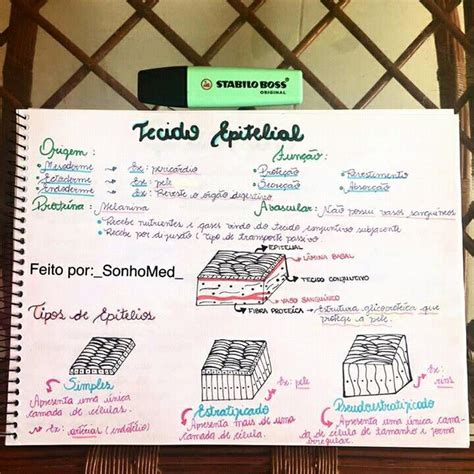 STABILO BOSS
ORIGINAL
Tecido Epitelial
Origem:
• Mesoderme → Ex: pericárdio
• Ectoderme → Ex: pele
• Endoderme → Ex: Reveste o órgão digestivo
Função:
• Proteção
• Secreção
• Revestimento
• Absorção
Proteína: Melanina
Avascular: Não possui vasos sanguíneos
• Recebe nutrientes e gases vindo do tecido conjuntivo subjacente
• Recebe por difusão (tipo de transporte passivo
EPITELIAL
LÂMINA BASAL
TECIDO CONJUNTIVO
VASO SANGUÍNEO
FIBRA PROTEICA → Estrutura glicoproteica que
protege a pele.
Feito por:_SonhoMed_
Tipos de Epitélios
Simples
Apresenta uma única
camada de células.
Ex: artérias (endotélio)
Ex: pele
Estratificado
Apresenta mais de uma
camada de célula.
Ex: rins
Pseudoestratificado
Apresenta uma única cama
da de célula de tamanho e forma
irregular.